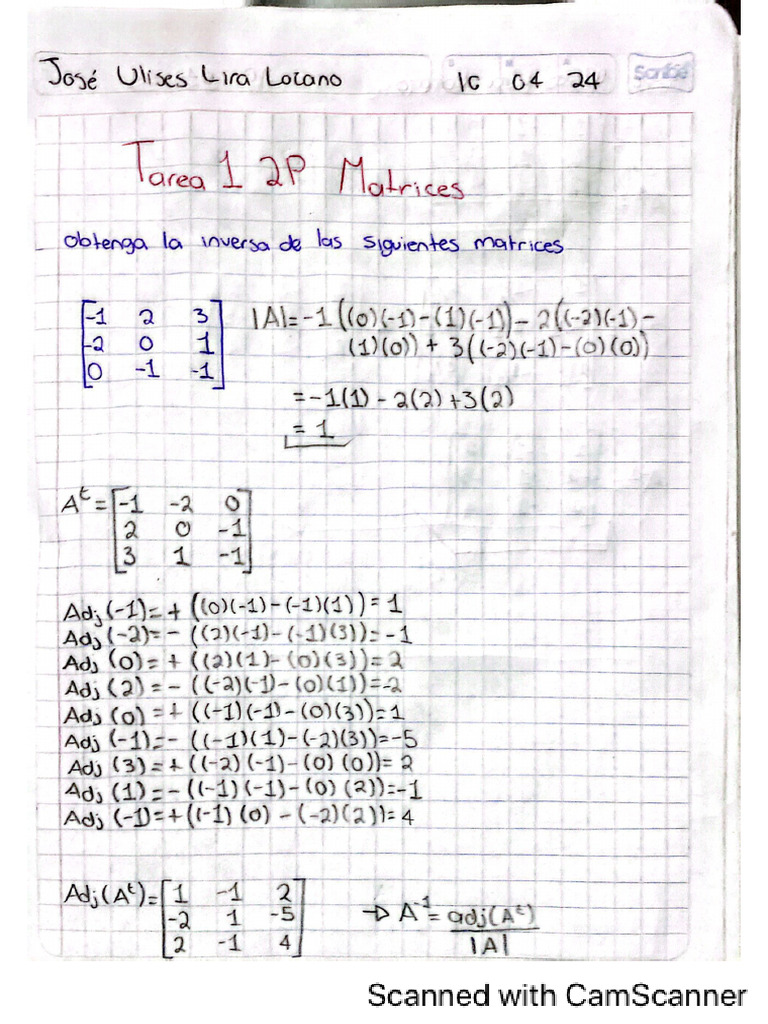 José Ulises Lira Lozano 10 04 24 Scribe
Tarea 1 2P Matrices
obtenga la inversa de las siguientes matrices
[-1 2 3] |A|=-1((0)(-1)-(1)(-1))-2((-2)(-1)-
[-2 0 1] (1)(0))+3((-2)(-1)-(0)(0))
[0 -1 -1]
=-1(1)-2(2)+3(2)
=1
Aᵗ=[-1 -2 0]
[2 0 -1]
[3 1 -1]
Adj(-1)=+((0)(-1)-(-1)(1))=1
Adj(-2)=-((2)(-1)-(-1)(3))=-1
Adj(0)=+((2)(1)-(0)(3))=2
Adj(2)=-((-2)(-1)-(0)(1))=-2
Adj(0)=+((-1)(-1)-(0)(3))=1
Adj(-1)=-((-1)(1)-(-2)(3))=-5
Adj(3)=+((-2)(-1)-(0)(0))=2
Adj(1)=-((-1)(-1)-(0)(2))=-1
Adj(-1)=+((-1)(0)-(-2)(2))=4
Adj(Aᵗ)=[1 -1 2] → A⁻¹=adj(Aᵗ)
[-2 1 -5] |A|
[2 -1 4]
Scanned with CamScanner